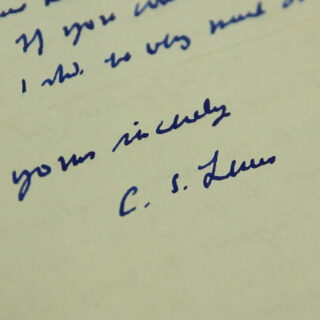 If you
I sh. so very much
yours sincerely
C. S. Lewis